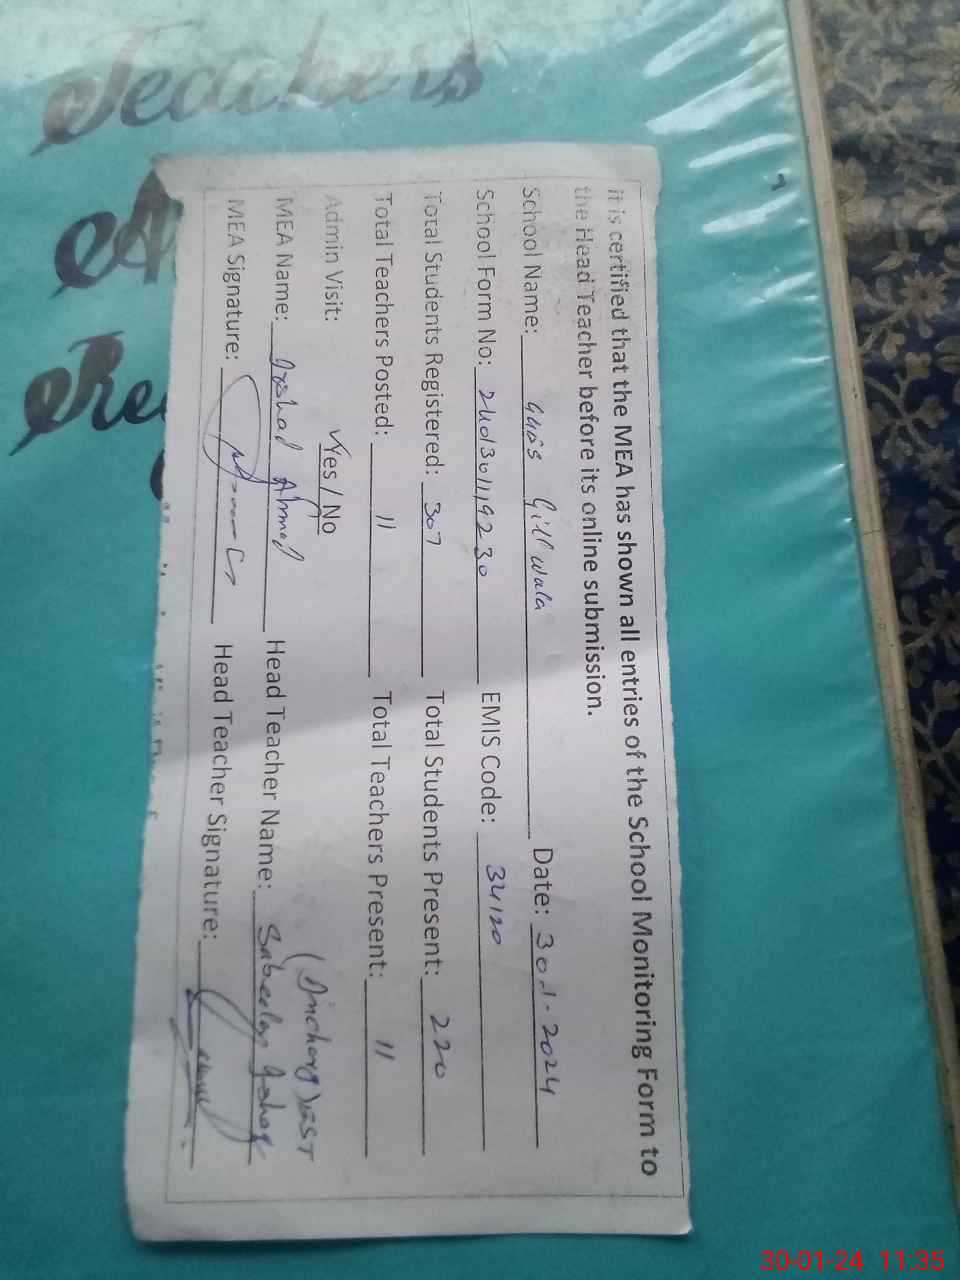 Teachers
it is certified that the MEA has shown all entries of the School Monitoring Form to
the Head Teacher before its online submission.
School Name: GGES Gill wala Date: 30.1-2024
School Form No: 2401301119230 EMIS Code: 34120
Total Students Registered: 307 Total Students Present: 220
Total Teachers Posted: 11 Total Teachers Present: 11
Admin Visit: Yes / No (Incharg) EST
MEA Name: Irshad Ahmad Head Teacher Name: Sabeela
MEA Signature: Head Teacher Signature:
30-01-24 11:35